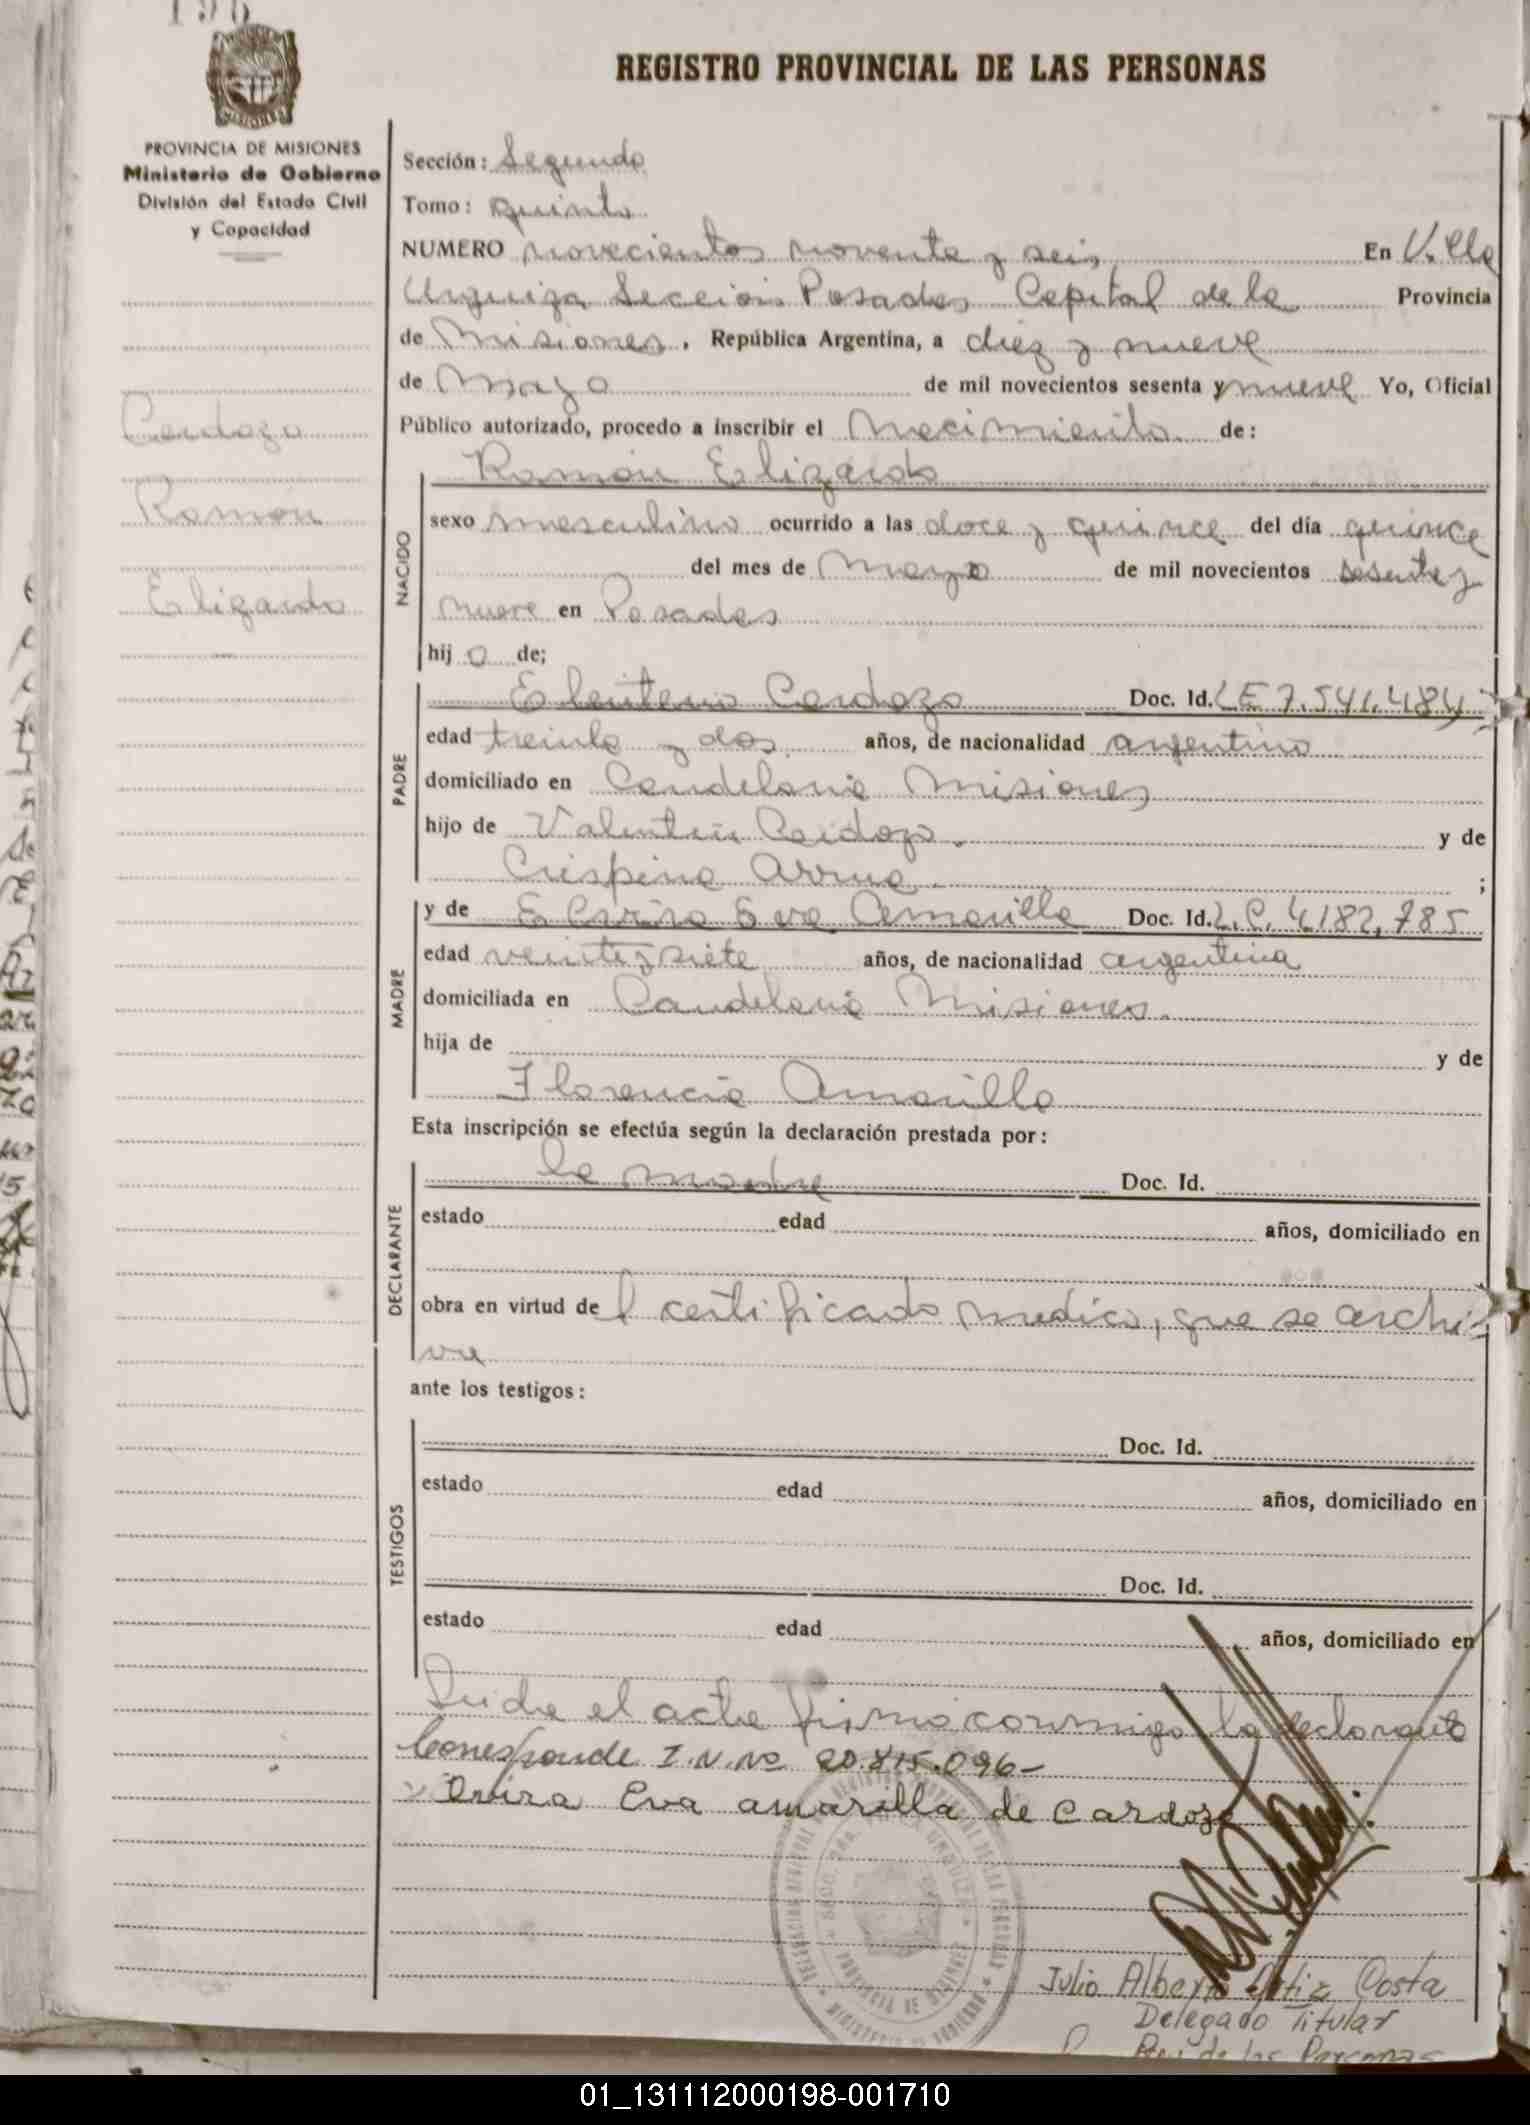 196
REGISTRO PROVINCIAL DE LAS PERSONAS
PROVINCIA DE MISIONES
Ministerio de Gobierno
División del Estado Civil
y Capacidad
Cardozo
Ramón
Elizardo
Sección: Segunda
Tomo: quinto
NUMERO novecientos noventa y seis En Villa
Urquiza Sección Posadas Capital de la Provincia
de Misiones, República Argentina, a diez y nueve
de Mayo de mil novecientos sesenta y nueve Yo, Oficial
Público autorizado, procedo a inscribir el Nacimiento de:
Ramón Elizardo
NACIDO
sexo masculino ocurrido a las doce y quince del día quince
del mes de Mayo de mil novecientos sesenta y
nueve en Posadas
hijo de;
PADRE
Eleuterio Cardozo Doc. Id. LE 7.541.484
edad treinta y dos años, de nacionalidad argentino
domiciliado en Candelaria Misiones
hijo de Valentin Cardozo. y de
Crispina Arrua. ;
MADRE
y de Eva Amarilla Doc. Id. L.C. 4.182,785
edad veinte y siete años, de nacionalidad argentina
domiciliada en Candelaria Misiones.
hija de y de
Florencia Amarilla
Esta inscripción se efectúa según la declaración prestada por:
DECLARANTE
la madre Doc. Id.
estado edad años, domiciliado en
obra en virtud del certificado medico, que se archi-
va
ante los testigos:
TESTIGOS
Doc. Id.
estado edad años, domiciliado en
Doc. Id.
estado edad años, domiciliado en
el acta firma conmigo la declarante
Corresponde I.N.Nº 20.815.096-
Eva amarilla de Cardozo
PROVINCIA DE MISIONES
Julio Alberto Ortiz Costa
Delegado Titular
de las Personas
01_131112000198-001710